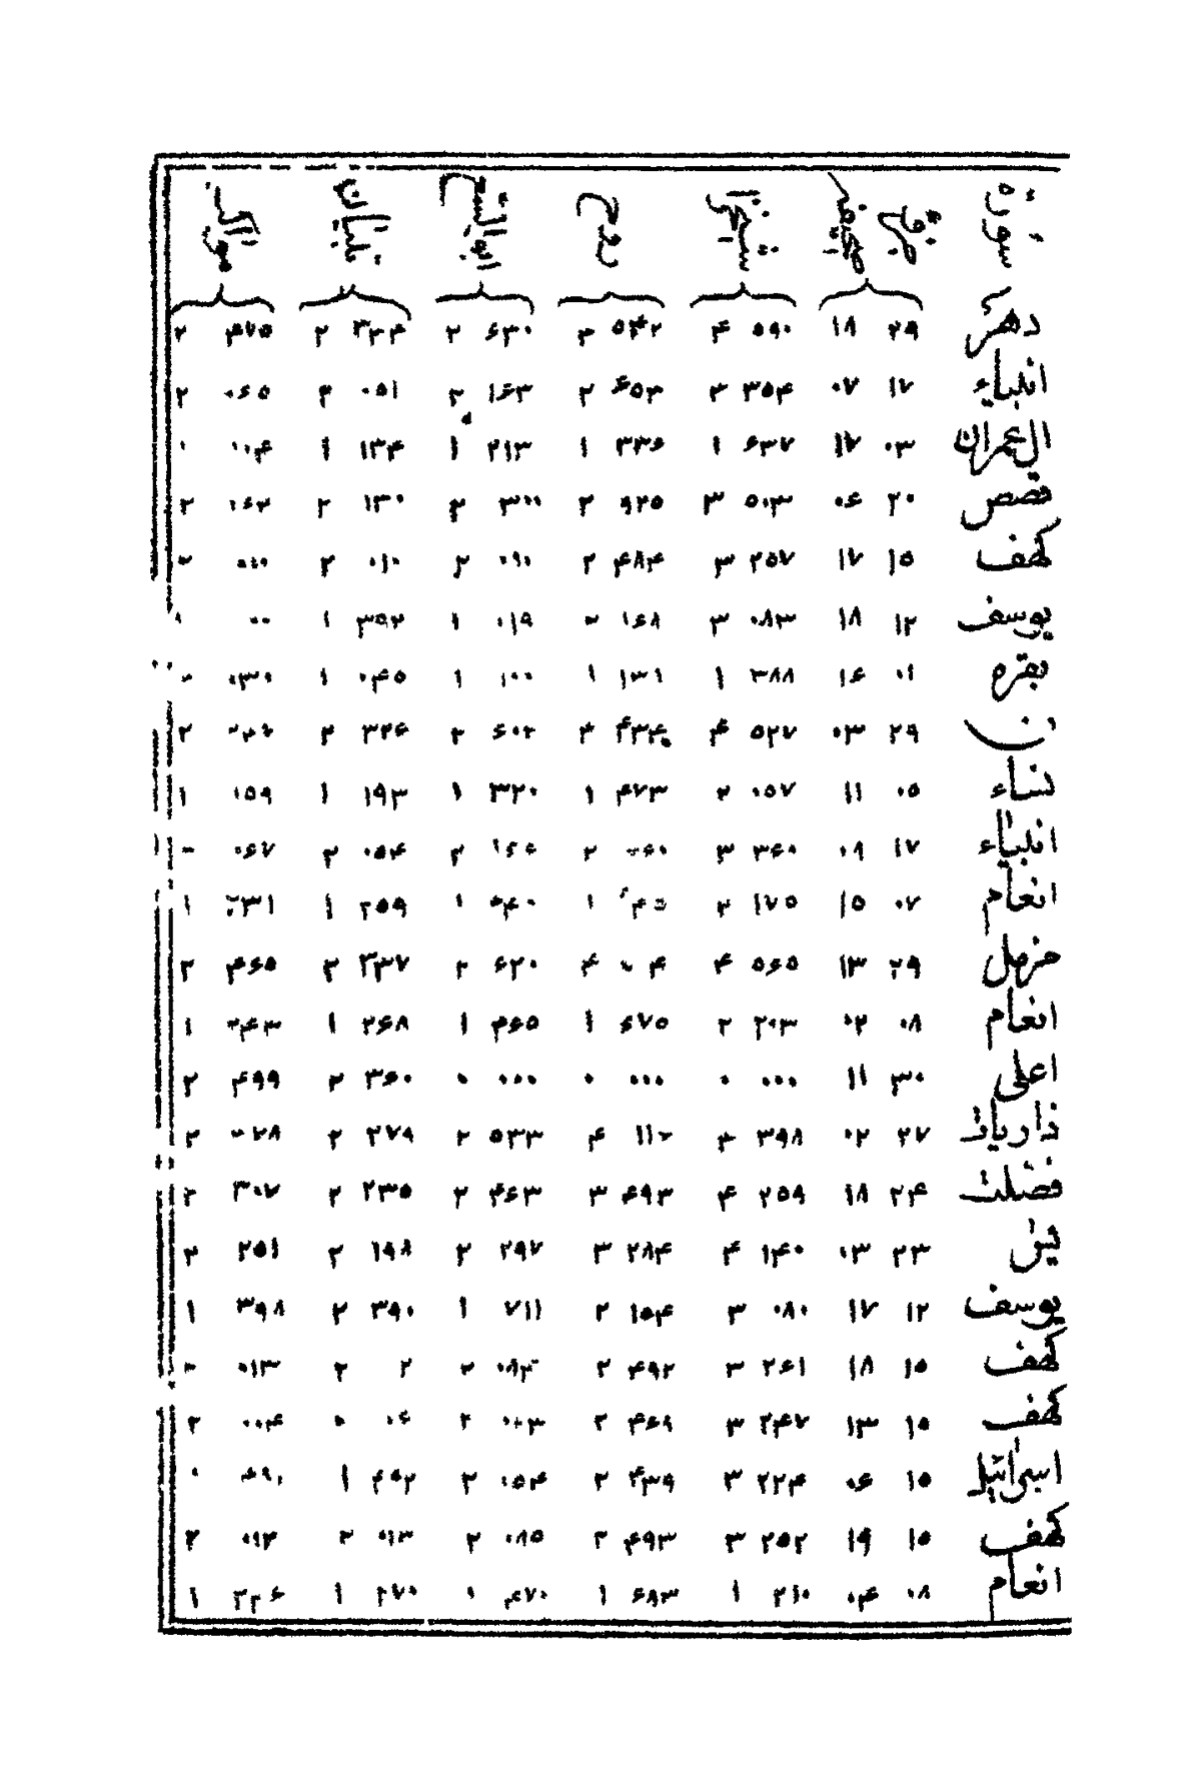 سوره جزؤ صحیفه شیخزاده روح ابوالسعود تبیان مواکب
دهر ۲۹ ۱۸ ۵۹۰ ۴ ۵۴۲ ۳ ۶۳۰ ۲ ۳۳۴ ۲ ۴۷۵ ۲
انبیاء ۱۷ ۰۷ ۳۵۴ ۳ ۶۵۳ ۲ ۱۶۳ ۲ ۰۵۱ ۲ ۰۶۵ ۲
ال عمران ۰۳ ۱۷ ۶۳۷ ۱ ۳۳۶ ۱ ۲۱۳ ۱ ۱۳۴ ۱
قصص ۲۰ ۰۶ ۵۰۳ ۳ ۹۲۵ ۲ ۳۰۰ ۲ ۱۳۰ ۲ ۱۶۳ ۲
کهف ۱۵ ۱۷ ۲۵۷ ۳ ۴۸۴ ۲ ۰۹۰ ۲ ۰۱۰ ۲
یوسف ۱۲ ۱۸ ۰۸۳ ۳ ۱۶۸ ۰۱۹ ۱ ۳۹۲ ۱
بقره ۰۱ ۱۶ ۳۸۸ ۱ ۱۳۱ ۱ ۱۰۰ ۱ ۰۴۵ ۱ ۰۳۰
ن ۲۹ ۰۳ ۵۲۷ ۴ ۴۳۴ ۳ ۶۰۲ ۲ ۳۲۶ ۲
نساء ۰۵ ۱۱ ۰۵۷ ۲ ۴۷۳ ۱ ۳۲۰ ۱ ۱۹۳ ۱ ۱۵۹ ۱
انبیاء ۱۷ ۰۹ ۳۶۰ ۳ ۲ ۱۶۶ ۲ ۰۵۴ ۲ ۰۶۷
انعام ۰۷ ۱۵ ۱۷۵ ۲ ۱ ۱ ۲۵۹ ۱ ۲۳۱ ۱
مزمل ۲۹ ۱۳ ۵۶۵ ۴ ۴ ۶۲۰ ۲ ۳۳۷ ۲ ۴۶۵ ۲
انعام ۰۸ ۰۲ ۲۰۳ ۲ ۶۷۵ ۱ ۴۶۵ ۱ ۲۶۸ ۱ ۲۴۳ ۱
اعلی ۳۰ ۱۱ ۰۰۰ ۰ ۰۰۰ ۰ ۰۰۰ ۰ ۳۶۰ ۲ ۴۹۹ ۲
ذاریات ۲۷ ۰۲ ۳۹۸ ۴ ۱۱۲ ۴ ۵۳۳ ۲ ۲۷۹ ۲ ۲
فصلت ۲۴ ۱۸ ۲۵۹ ۴ ۶۹۳ ۳ ۴۶۳ ۲ ۲۳۵ ۲ ۳۰۷ ۲
یس ۲۳ ۰۳ ۱۴۰ ۴ ۲۸۴ ۳ ۲۹۷ ۲ ۱۹۸ ۲ ۲۵۱ ۲
یوسف ۱۲ ۱۷ ۰۸۰ ۳ ۱۵۴ ۲ ۷۱۱ ۱ ۳۹۰ ۲ ۳۹۸ ۱
کهف ۱۵ ۱۸ ۲۶۱ ۳ ۴۹۲ ۲ ۰۸۳ ۲ ۲ ۲ ۰۱۳
کهف ۱۵ ۱۳ ۲۴۷ ۳ ۴۶۹ ۲ ۲ ۰۰۴ ۲
اسرائیل ۱۵ ۰۶ ۲۲۴ ۳ ۴۳۹ ۲ ۰۵۴ ۲ ۴۵۲ ۱
کهف ۱۵ ۱۹ ۲۵۲ ۳ ۴۹۳ ۲ ۰۸۵ ۲ ۰۱۳ ۲ ۰۱۲ ۲
انعام ۰۸ ۰۴ ۲۱۰ ۱ ۶۸۳ ۱ ۴۷۰ ۱ ۲۷۰ ۱ ۲۴۶ ۱